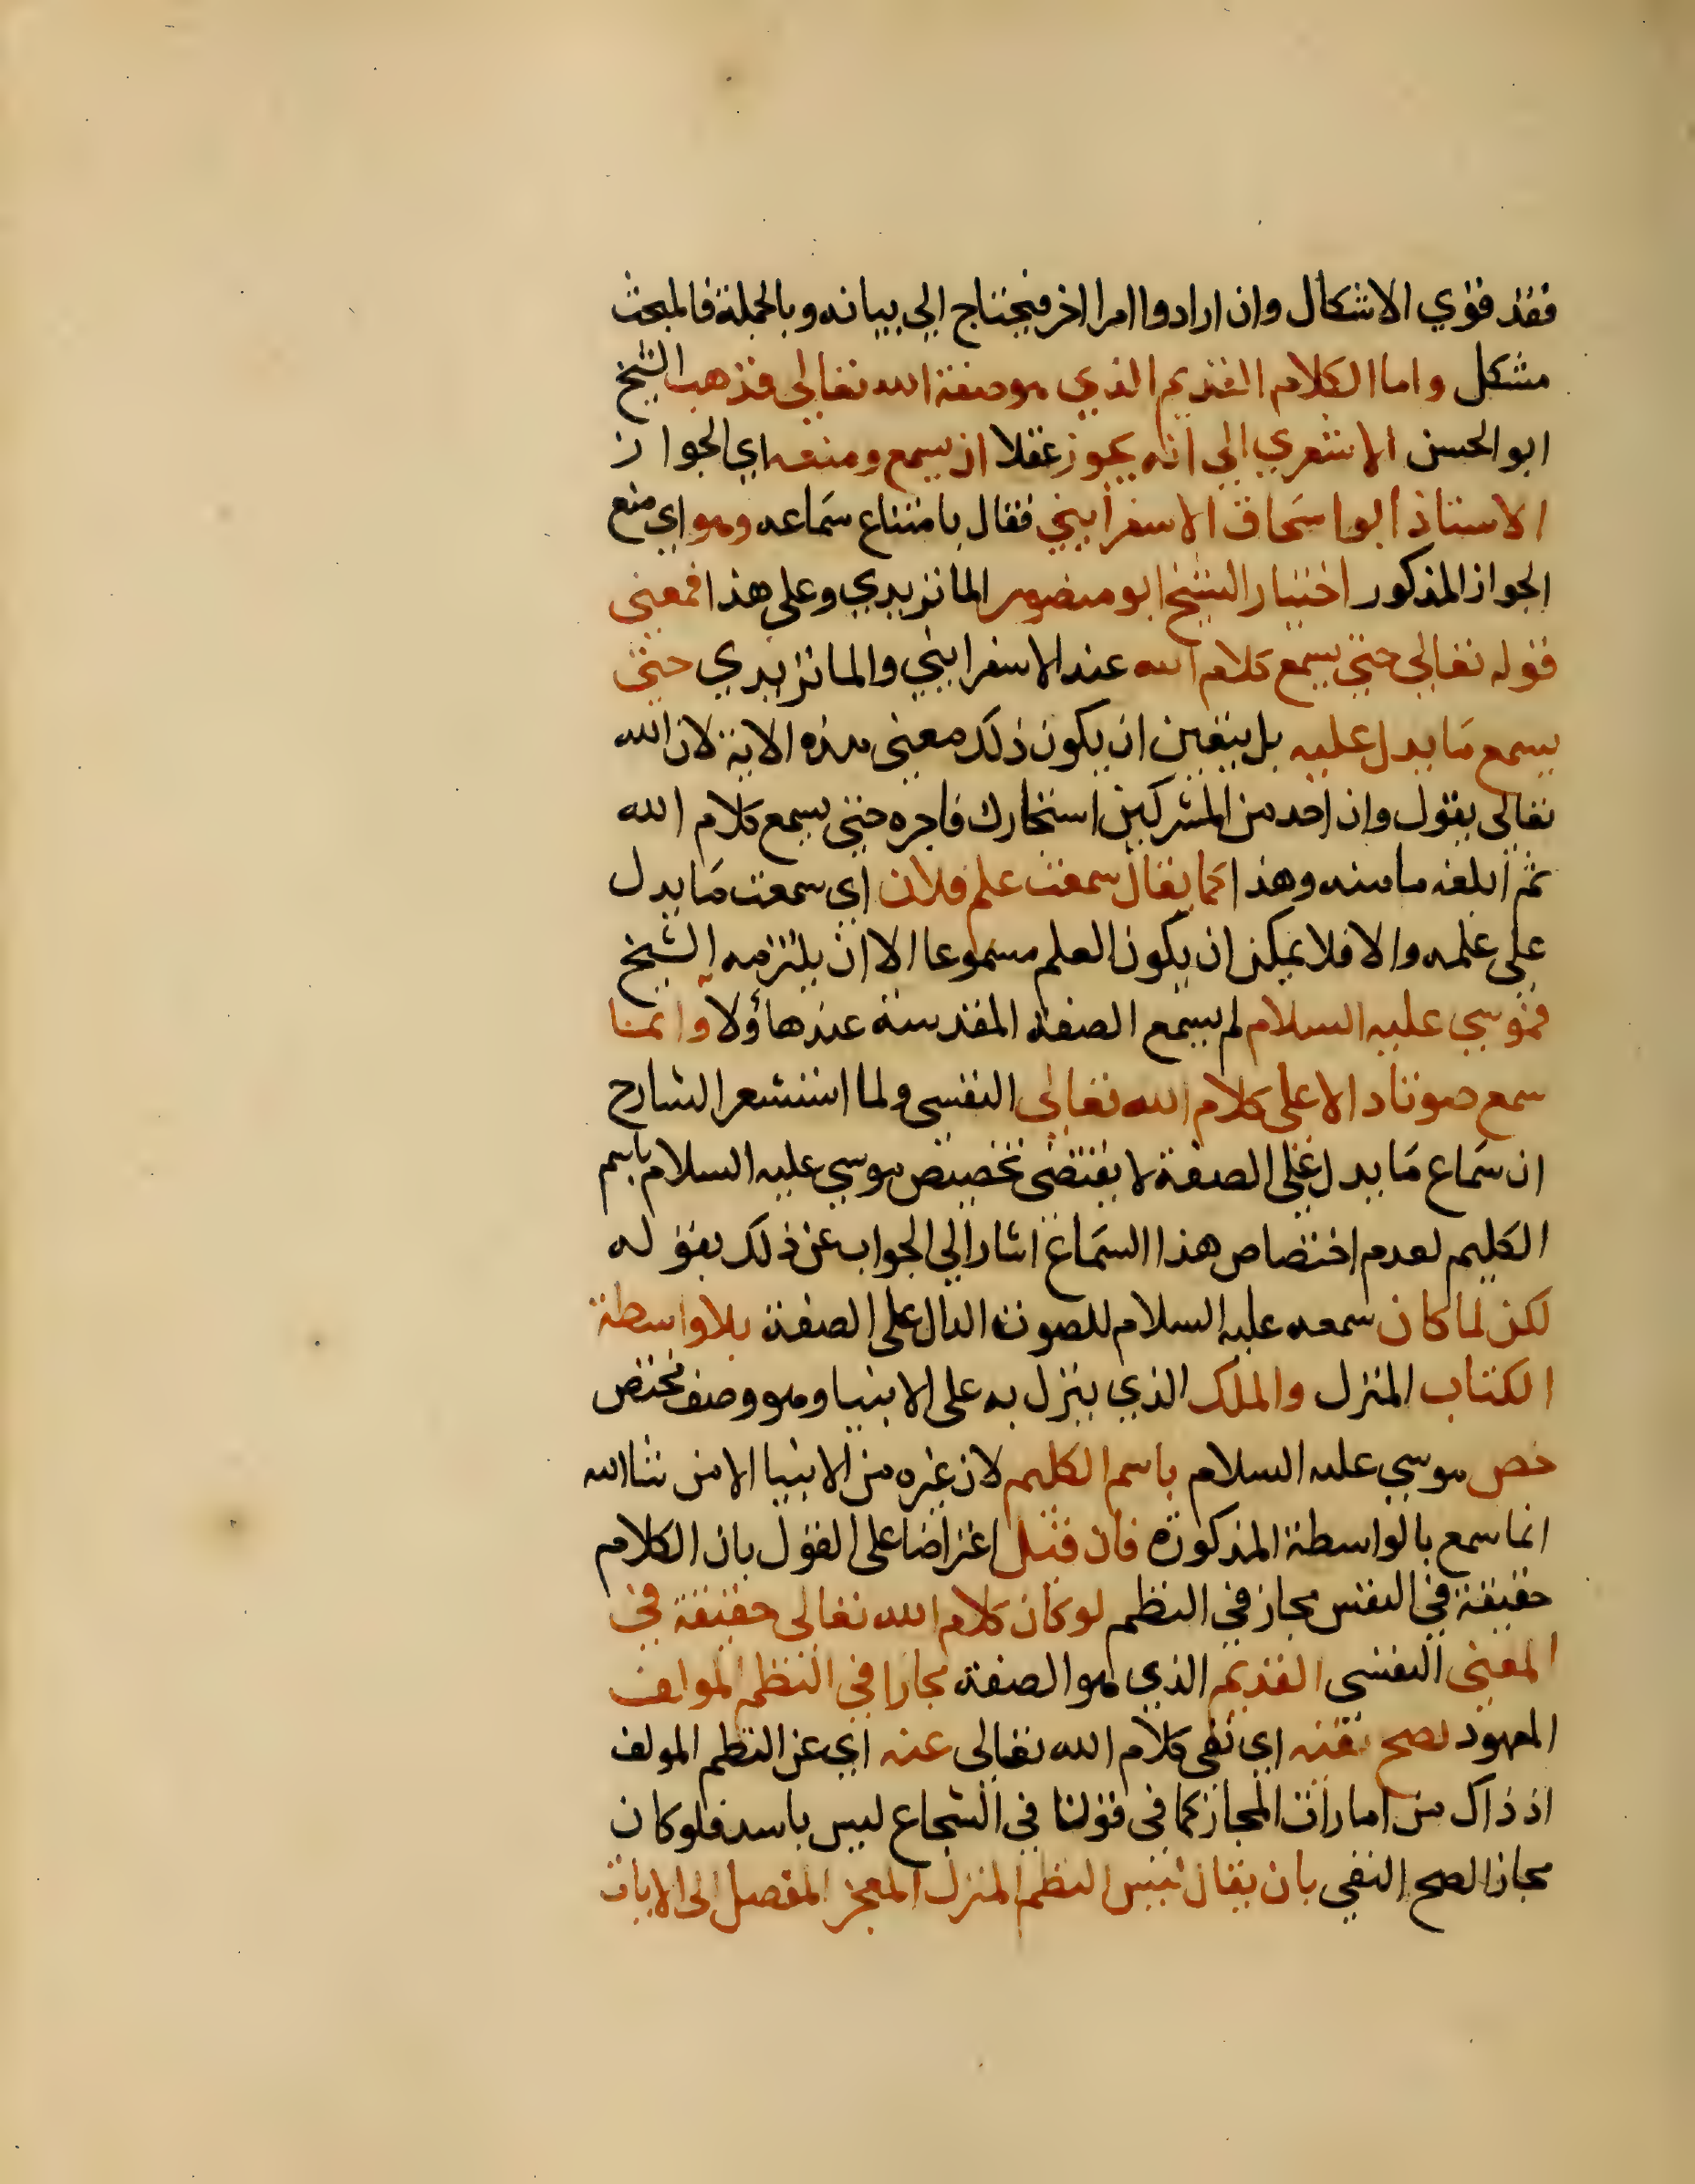 فقد قوي الاشكال وان ارادوا امرا اخر فيحتاج الي بيانه وبالجملة فالمبحث
مشكل واما الكلام القديم الذي هو صفة الله تعالي فذهب الشيخ
ابو الحسن الاشعري الي انه يجوز عقلا ان يسمع ومنعه اي الجواز
الاستاذ ابو اسحاق الاسفرايني فقال بامتناع سماعه وهو اي منع
الجواز المذكور اختيار الشيخ ابو منصور الماتريدي وعلي هذا فمعني
قوله تعالي حتي يسمع كلام الله عند الاسفرايني والماتريدي حتي
يسمع ما يدل عليه بل يتعين ان يكون ذلك معني هذه الاية لان الله
تعالي يقول وان احد من المشركين استجارك فاجره حتي يسمع كلام الله
ثم ابلغه مامنه وهذا كما يقال سمعت علم فلان اي سمعت ما يدل
علي علمه والا فلا يمكن ان يكون العلم مسموعا الا ان يلتزمه الشيخ
فموسي عليه السلام لم يسمع الصفة المقدسة عند هاؤلا وانما
سمع صوتا دالا علي كلام الله تعالي النفسي ولما استشعر الشارح
ان سماع ما يدل علي الصفة لا يقتضي تخصيص موسي عليه السلام باسم
الكليم لعدم اختصاص هذا السماع اشار الي الجواب عن ذلك بقوله
لكن لما كان سمعه عليه السلام للصوت الدال علي الصفة بلا واسطة
الكتاب المنزل والملك الذي ينزل به علي الانبيا وهو وصف مختص
خص موسي عليه السلام باسم الكليم لان غيره من الانبيا الا من شا الله
انما سمع بالواسطة المذكورة فان قيل اعتراضا علي القول بان الكلام
حقيقة في النفس مجاز في النظم لو كان كلام الله تعالي حقيقة في
المعني النفسي القديم الذي هو الصفة مجازا في النظم المولف
المعهود لصح نفيه اي نفي كلام الله تعالي عنه اي عن النظم المولف
اذ ذاك من امارات المجاز كما في قولنا في الشجاع ليس باسد فلو كان
مجازا لصح النفي بان يقال ليس النظم المنزل المعجز المفصل الي الايات